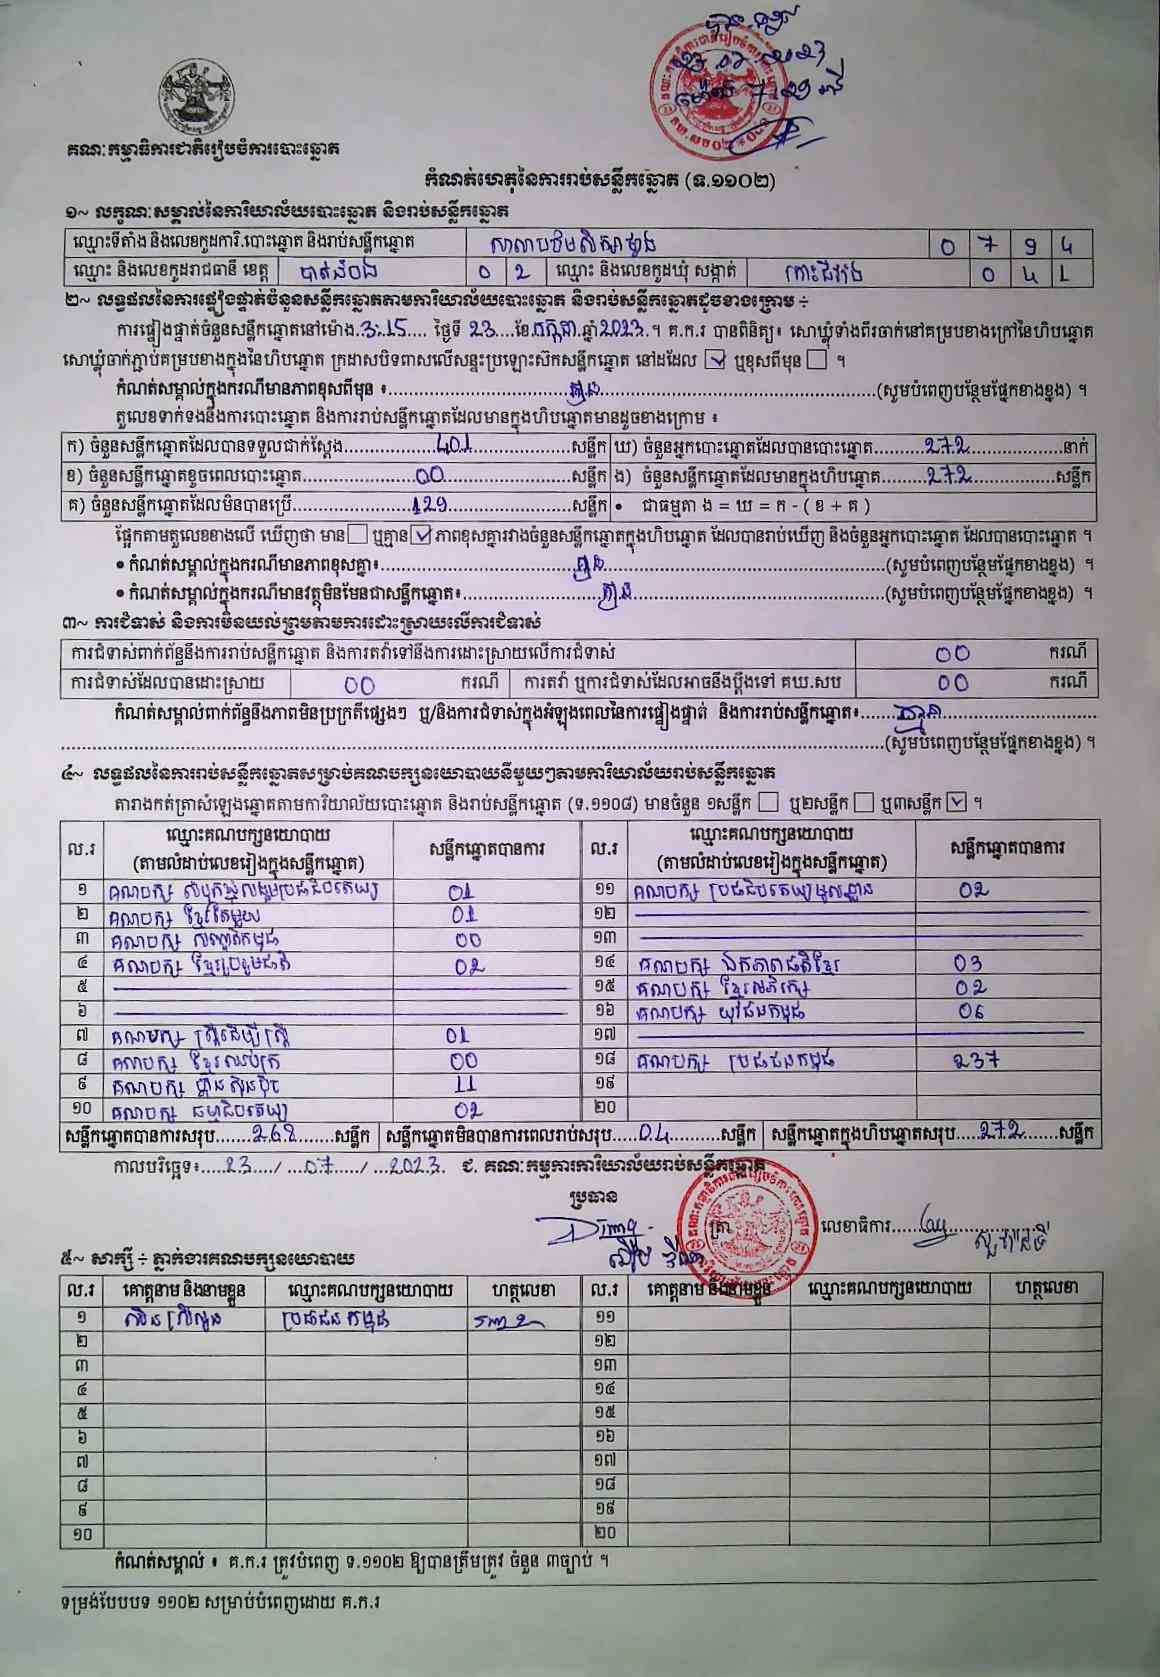 គណៈកម្មាធិការជាតិរៀបចំការបោះឆ្នោត
កំណត់ហេតុនៃការរាប់សន្លឹកឆ្នោត (ទ.១១០២)
១~ លក្ខណៈសម្គាល់នៃការិយាល័យបោះឆ្នោត និងរាប់សន្លឹកឆ្នោត
ឈ្មោះទីតាំង និងលេខកូដការិ.បោះឆ្នោត និងរាប់សន្លឹកឆ្នោត 0 7 9 4
ឈ្មោះ និងលេខកូដរាជធានី ខេត្ត បាត់ដំបង 0 2 ឈ្មោះ និងលេខកូដឃុំ សង្កាត់ 0 4 1
២~ លទ្ធផលនៃការផ្ទៀងផ្ទាត់ចំនួនសន្លឹកឆ្នោតតាមការិយាល័យបោះឆ្នោត និងរាប់សន្លឹកឆ្នោតដូចខាងក្រោម ÷
ការផ្ទៀងផ្ទាត់ចំនួនសន្លឹកឆ្នោតនៅម៉ោង.3:15.... ថ្ងៃទី 23....ខែ.កក្កដា.ឆ្នាំ2023.។ គ.ក.រ បានពិនិត្យ៖ សោឃ្លុំទាំងពីរចាក់នៅគម្របខាងក្រៅនៃហិបឆ្នោត
សោឃ្លុំចាក់ភ្ជាប់គម្របខាងក្នុងនៃហិបឆ្នោត ក្រដាសបិទពាសលើសន្ទះប្រឡោះស៊កសន្លឹកឆ្នោត នៅដដែល ☑ ឬខុសពីមុន ☐ ។
កំណត់សម្គាល់ក្នុងករណីមានភាពខុសពីមុន ៖........គ្មាន........(សូមបំពេញបន្ថែមផ្នែកខាងខ្នង) ។
តួលេខទាក់ទងនឹងការបោះឆ្នោត និងការរាប់សន្លឹកឆ្នោតដែលមានក្នុងហិបឆ្នោតមានដូចខាងក្រោម ៖
ក) ចំនួនសន្លឹកឆ្នោតដែលបានទទួលជាក់ស្តែង........401........សន្លឹក ឃ) ចំនួនអ្នកបោះឆ្នោតដែលបានបោះឆ្នោត........272........នាក់
ខ) ចំនួនសន្លឹកឆ្នោតខូចពេលបោះឆ្នោត........00........សន្លឹក ង) ចំនួនសន្លឹកឆ្នោតដែលមានក្នុងហិបឆ្នោត........272........សន្លឹក
គ) ចំនួនសន្លឹកឆ្នោតដែលមិនបានប្រើ........129........សន្លឹក • ជាធម្មតា ង = ឃ = ក - ( ខ + គ )
ផ្អែកតាមតួលេខខាងលើ ឃើញថា មាន ☐ ឬគ្មាន ☑ ភាពខុសគ្នារវាងចំនួនសន្លឹកឆ្នោតក្នុងហិបឆ្នោត ដែលបានរាប់ឃើញ និងចំនួនអ្នកបោះឆ្នោត ដែលបានបោះឆ្នោត ។
• កំណត់សម្គាល់ក្នុងករណីមានភាពខុសគ្នា៖........គ្មាន........(សូមបំពេញបន្ថែមផ្នែកខាងខ្នង) ។
• កំណត់សម្គាល់ក្នុងករណីមានវត្ថុមិនមែនជាសន្លឹកឆ្នោត៖........គ្មាន........(សូមបំពេញបន្ថែមផ្នែកខាងខ្នង) ។
៣~ ការជំទាស់ និងការមិនយល់ព្រមតាមការដោះស្រាយលើការជំទាស់
ការជំទាស់ពាក់ព័ន្ធនឹងការរាប់សន្លឹកឆ្នោត និងការតវ៉ាទៅនឹងការដោះស្រាយលើការជំទាស់ 00 ករណី
ការជំទាស់ដែលបានដោះស្រាយ 00 ករណី ការតវ៉ា ឬការជំទាស់ដែលអាចនឹងប្តឹងទៅ គឃ.សប 00 ករណី
កំណត់សម្គាល់ពាក់ព័ន្ធនឹងភាពមិនប្រក្រតីផ្សេងៗ ឬ/និងការជំទាស់ក្នុងអំឡុងពេលនៃការផ្ទៀងផ្ទាត់ និងការរាប់សន្លឹកឆ្នោត៖........គ្មាន........
........(សូមបំពេញបន្ថែមផ្នែកខាងខ្នង) ។
៤~ លទ្ធផលនៃការរាប់សន្លឹកឆ្នោតសម្រាប់គណបក្សនយោបាយនីមួយៗតាមការិយាល័យរាប់សន្លឹកឆ្នោត
តារាងកត់ត្រាសំឡេងឆ្នោតតាមការិយាល័យបោះឆ្នោត និងរាប់សន្លឹកឆ្នោត (ទ.១១០៨) មានចំនួន ១សន្លឹក ☐ ឬ២សន្លឹក ☐ ឬ៣សន្លឹក ☑ ។
ល.រ ឈ្មោះគណបក្សនយោបាយ (តាមលំដាប់លេខរៀងក្នុងសន្លឹកឆ្នោត) សន្លឹកឆ្នោតបានការ ល.រ ឈ្មោះគណបក្សនយោបាយ (តាមលំដាប់លេខរៀងក្នុងសន្លឹកឆ្នោត) សន្លឹកឆ្នោតបានការ
១ គណបក្ស សំបុកឃ្មុំសង្គមប្រជាធិបតេយ្យ 01 ១១ គណបក្ស ប្រជាធិបតេយ្យមូលដ្ឋាន 02
២ គណបក្ស ខ្មែរតែមួយ 01 ១២
៣ គណបក្ស សញ្ជាតិកម្ពុជា 00 ១៣
៤ គណបក្ស ខ្មែររួបរួមជាតិ 02 ១៤ គណបក្ស ឯកភាពជាតិខ្មែរ 03
៥ ១៥ គណបក្ស ខ្មែរអភិរក្ស 02
៦ ១៦ គណបក្ស យុវជនកម្ពុជា 06
៧ គណបក្ស ស្ត្រីដើម្បីស្ត្រី 01 ១៧
៨ គណបក្ស ខ្មែរឈប់ក្រ 00 ១៨ គណបក្ស ប្រជាជនកម្ពុជា 237
៩ គណបក្ស ហ្វ៊ុនស៊ិនប៉ិច 11 ១៩
១០ គណបក្ស ធម្មាធិបតេយ្យ 02 ២០
សន្លឹកឆ្នោតបានការសរុប......268......សន្លឹក សន្លឹកឆ្នោតមិនបានការពេលរាប់សរុប.....04......សន្លឹក សន្លឹកឆ្នោតក្នុងហិបឆ្នោតសរុប.....272......សន្លឹក
កាលបរិច្ឆេទ៖.....23..../...07...../...2023. ជ. គណៈកម្មការការិយាល័យរាប់សន្លឹកឆ្នោត
ប្រធាន
ត្រា លេខាធិការ
៥~ សាក្សី ÷ ភ្នាក់ងារគណបក្សនយោបាយ
ល.រ គោត្តនាម និងនាមខ្លួន ឈ្មោះគណបក្សនយោបាយ ហត្ថលេខា ល.រ គោត្តនាម និងនាមខ្លួន ឈ្មោះគណបក្សនយោបាយ ហត្ថលេខា
១ ប្រជាជនកម្ពុជា ១១
២ ១២
៣ ១៣
៤ ១៤
៥ ១៥
៦ ១៦
៧ ១៧
៨ ១៨
៩ ១៩
១០ ២០
កំណត់សម្គាល់ ៖ គ.ក.រ ត្រូវបំពេញ ទ.១១០២ ឱ្យបានត្រឹមត្រូវ ចំនួន ៣ច្បាប់ ។
ទម្រង់បែបបទ ១១០២ សម្រាប់បំពេញដោយ គ.ក.រ